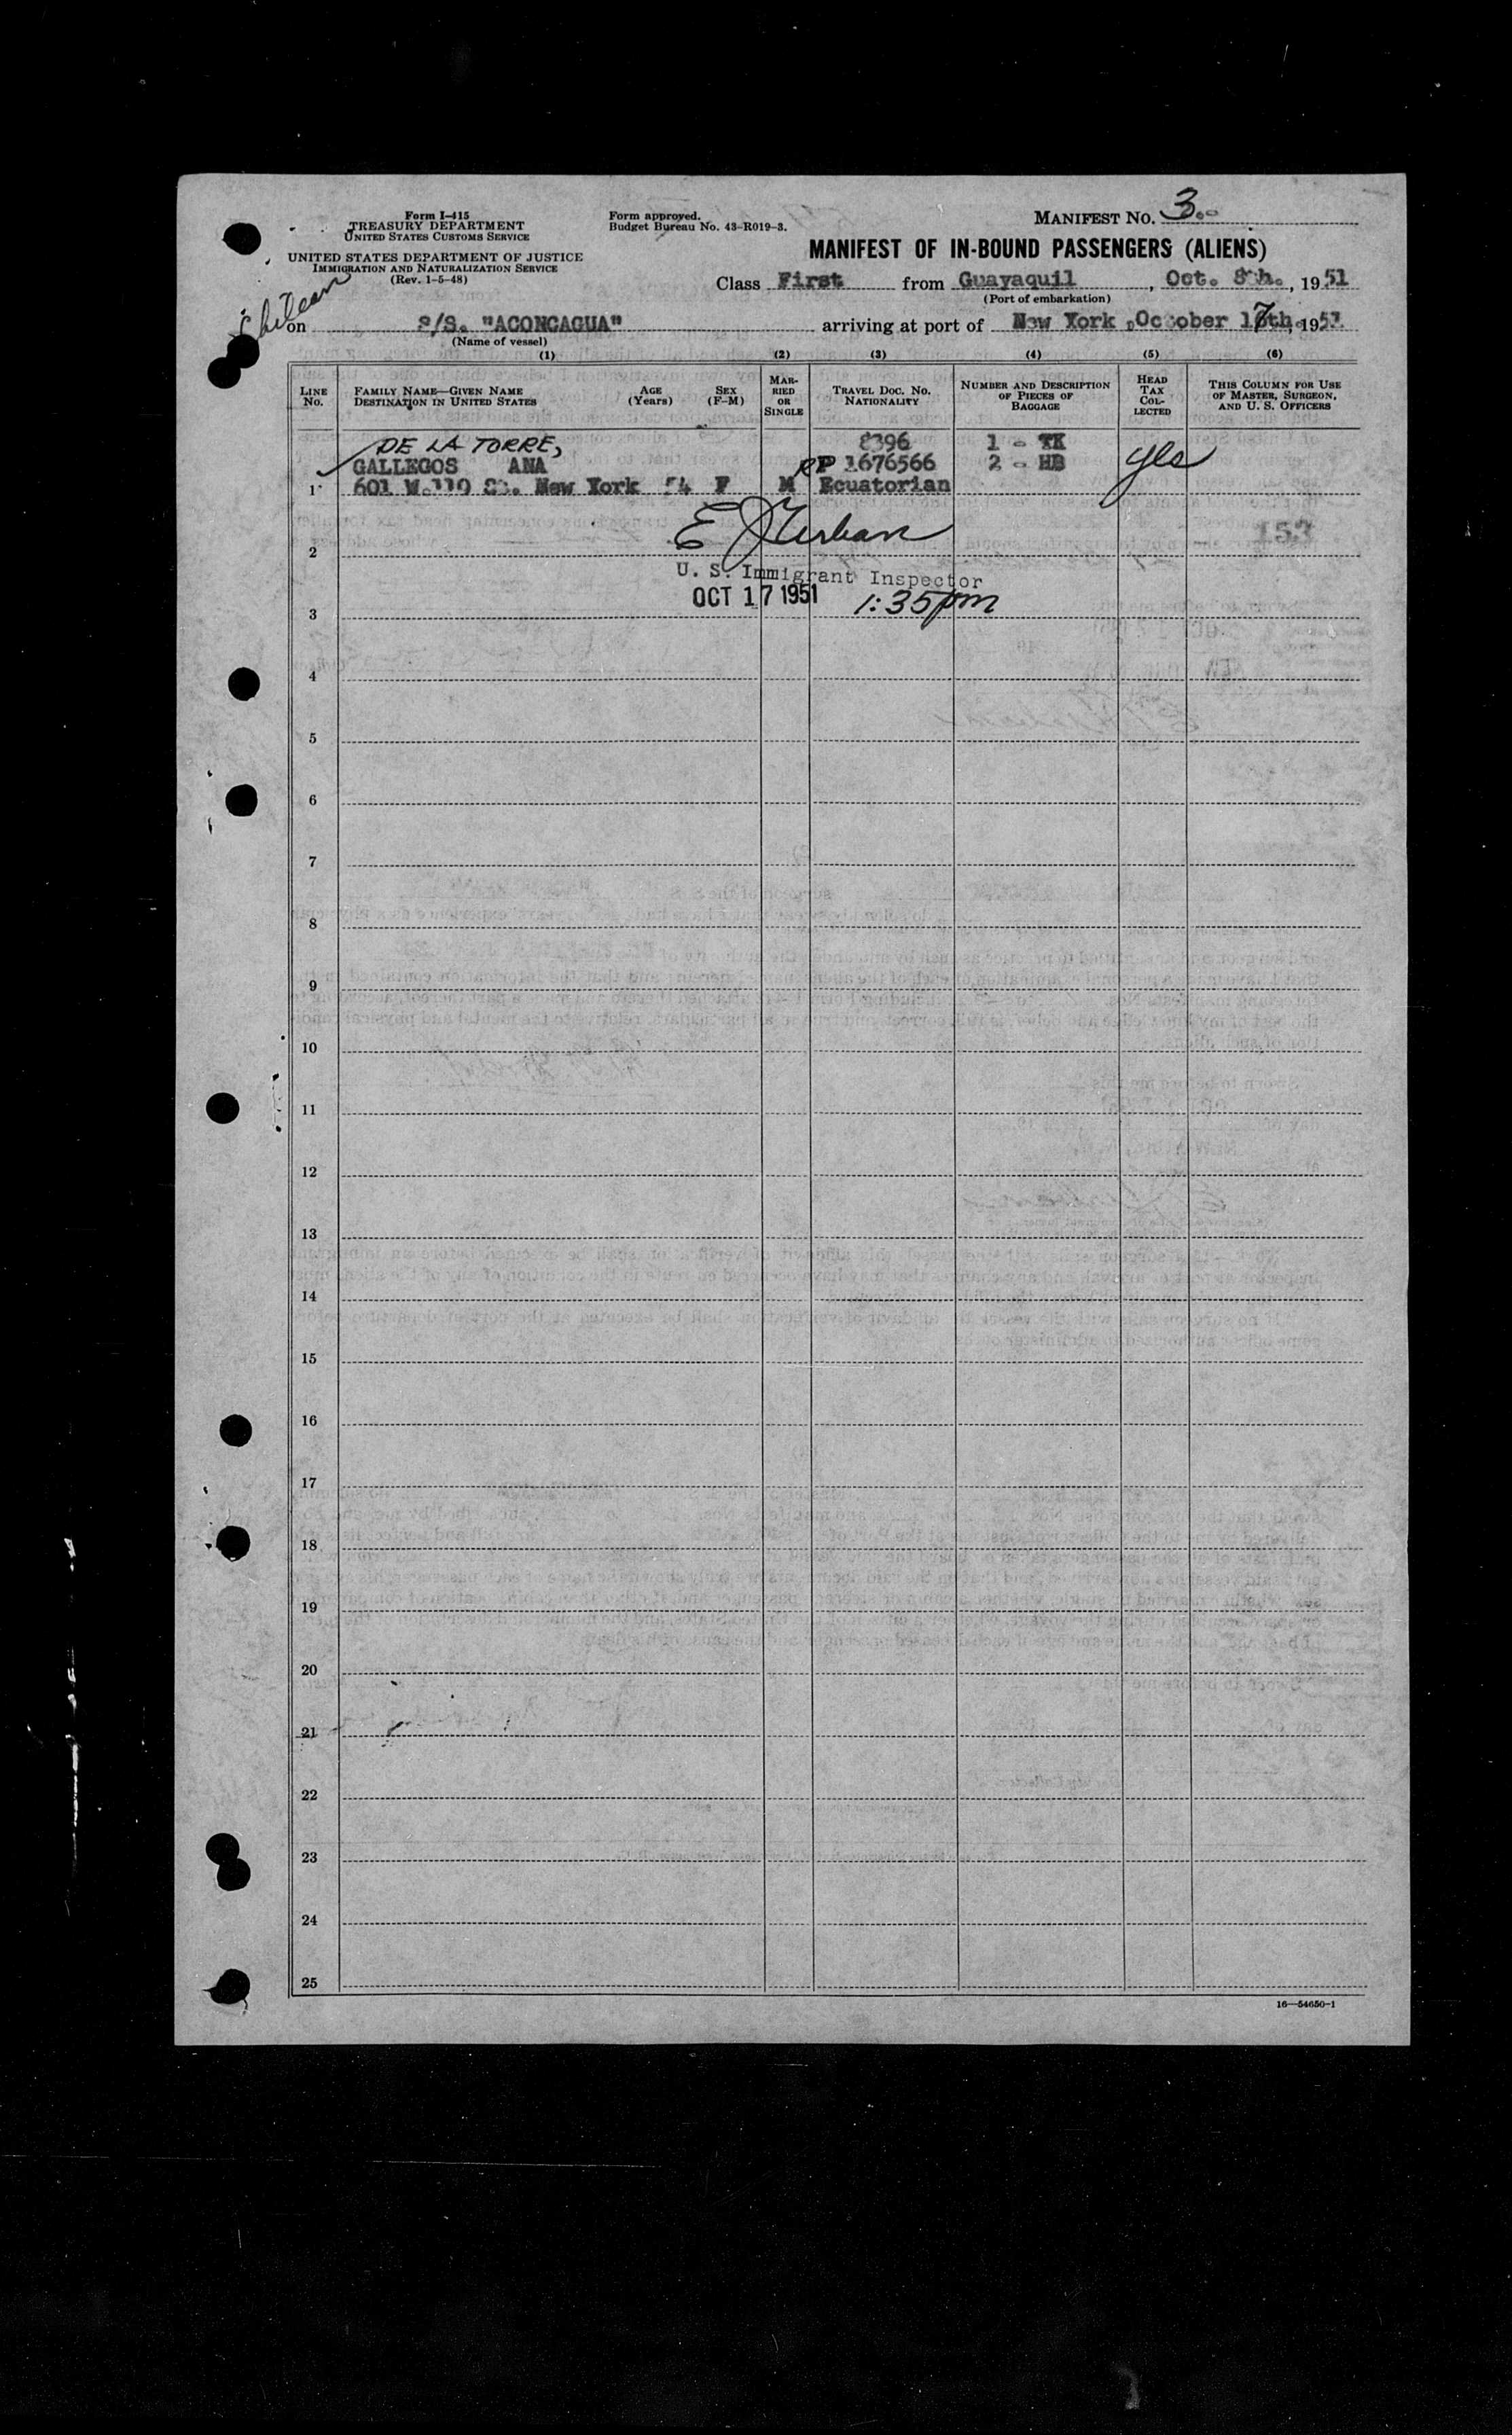 Form I-415
TREASURY DEPARTMENT
UNITED STATES CUSTOMS SERVICE
UNITED STATES DEPARTMENT OF JUSTICE
IMMIGRATION AND NATURALIZATION SERVICE
(Rev. 1-5-48)
Form approved.
Budget Bureau No. 43-R019-3.
MANIFEST NO. 3
MANIFEST OF IN-BOUND PASSENGERS (ALIENS)
Class First from Guayaquil, Oct. 8th., 1951
(Port of embarkation)
Chilean
on S/S. "ACONCAGUA" arriving at port of New York, October 17th, 1951
(Name of vessel)
(1) (2) (3) (4) (5) (6)
LINE No. FAMILY NAME—GIVEN NAME DESTINATION IN UNITED STATES AGE (Years) SEX (F-M) MARRIED OR SINGLE TRAVEL DOC. NO. NATIONALITY NUMBER AND DESCRIPTION OF PIECES OF BAGGAGE HEAD TAX COLLECTED THIS COLUMN FOR USE OF MASTER, SURGEON, AND U. S. OFFICERS
DE LA TORRE, 8396 1 - TK
GALLEGOS ANA RP 1676566 2 - HB yes
1 601 W.119 St. New York 54 F M Ecuatorian
E
153
2
U. S. Immigrant Inspector
OCT 17 1951 1:35pm
3
4
5
6
7
8
9
10
11
12
13
14
15
16
17
18
19
20
21
22
23
24
25
16—54650-1